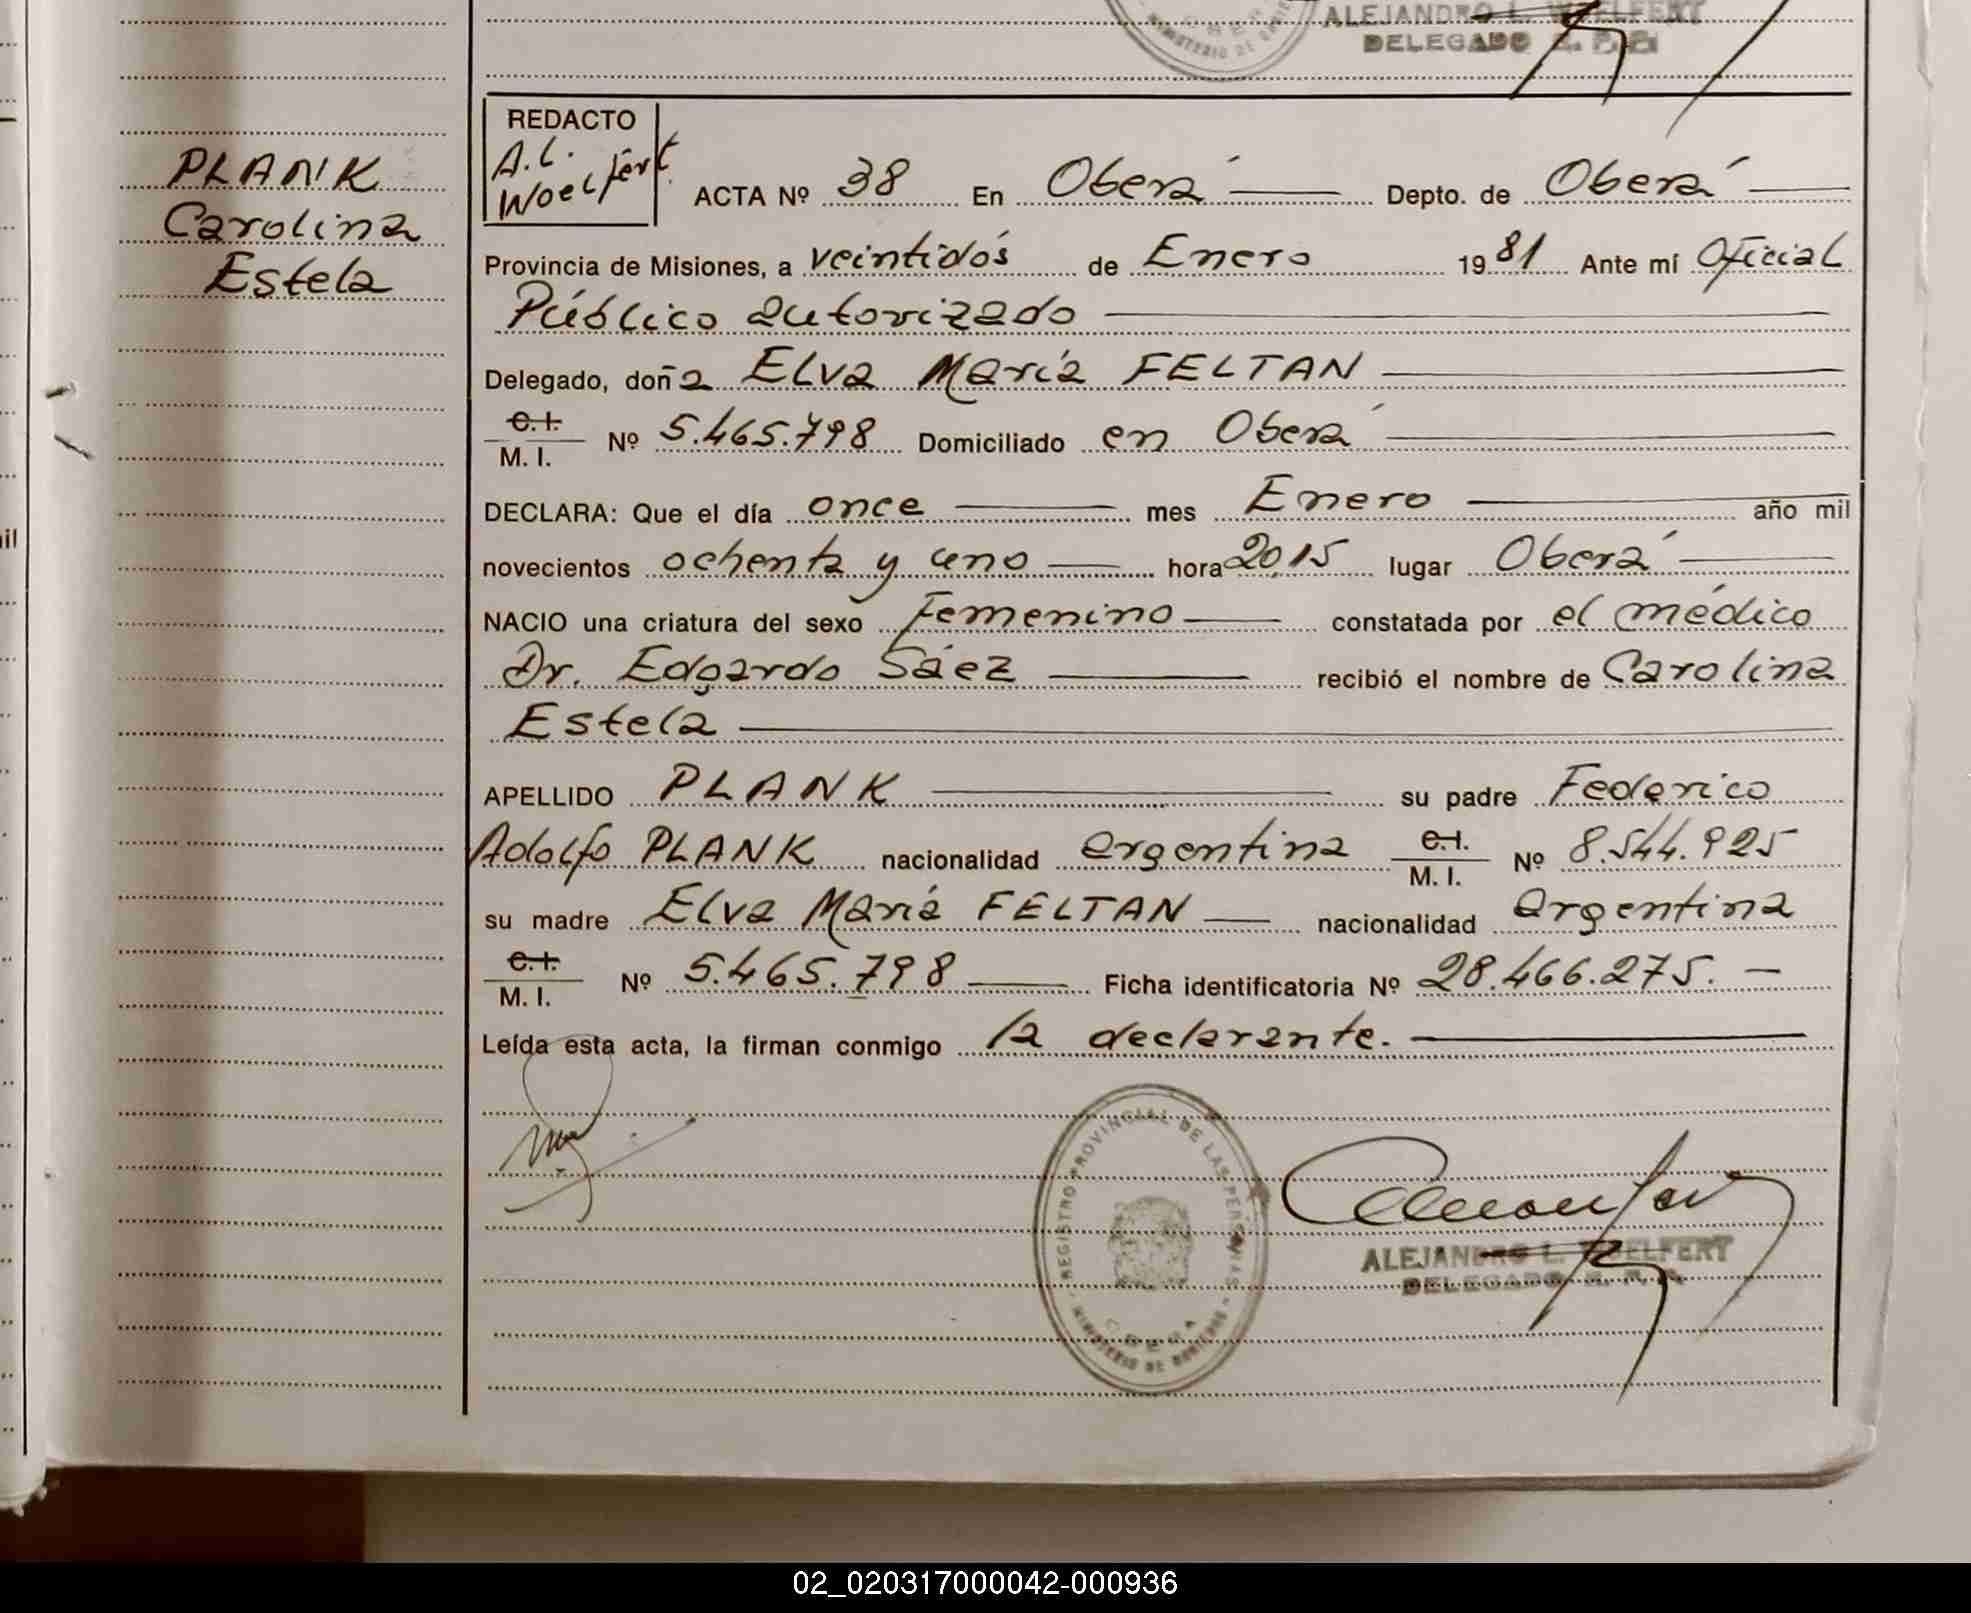 ALEJANDRO L. WOELFERT
DELEGADO
MINISTERIO DE
PLANK
Carolina
Estela
REDACTO
A.L.
Woelfert
ACTA Nº 38 En Oberá Depto. de Oberá
Provincia de Misiones, a veintidós de Enero 1981 Ante mí Oficial
Público autorizado
Delegado, doña Elva María FELTAN
C.I.
M. I. Nº 5.465.798 Domiciliado en Oberá
DECLARA: Que el día once mes Enero año mil
novecientos ochenta y uno hora 20,15 lugar Oberá
NACIO una criatura del sexo Femenino constatada por el médico
Dr. Edgardo Sáez recibió el nombre de Carolina
Estela
APELLIDO PLANK su padre Federico
Adolfo PLANK nacionalidad argentina C.I. M. I. Nº 8.544.925
su madre Elva María FELTAN nacionalidad argentina
C.I.
M. I. Nº 5.465.798 Ficha identificatoria Nº 28.466.275.-
Leída esta acta, la firman conmigo la declarante.
REGISTRO PROVINCIAL DE LAS PERSONAS
MINISTERIO DE GOBIERNO
ALEJANDRO L. WOELFERT
DELEGADO
mil
02_020317000042-000936